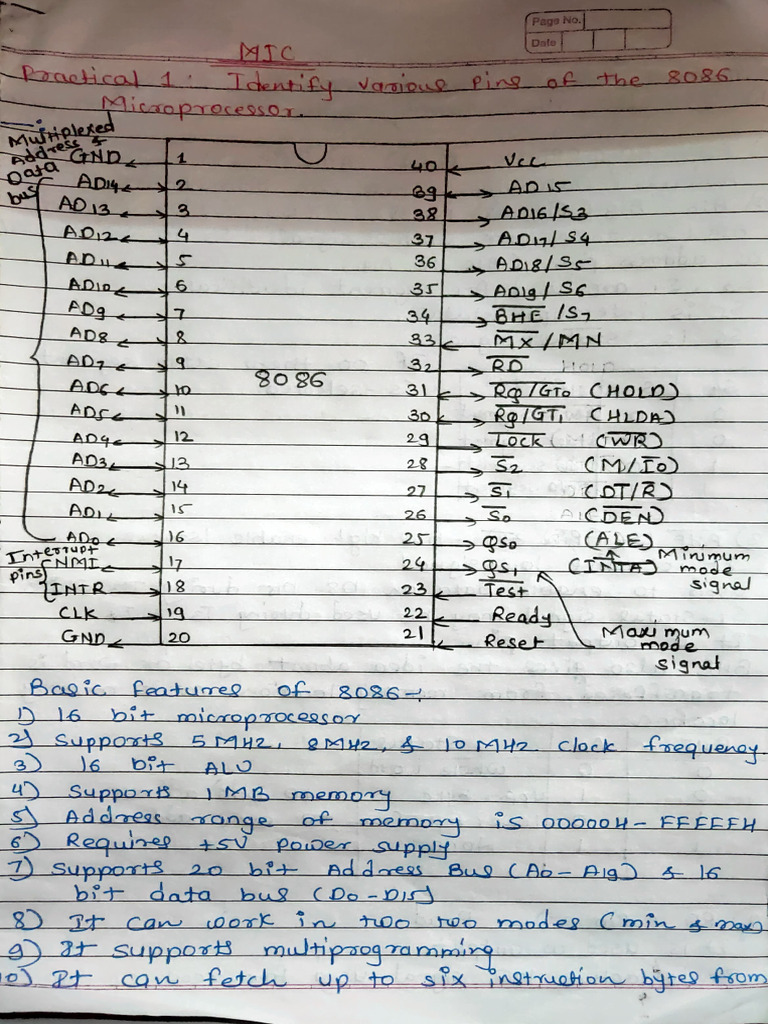 Page No.
Date
MIC
Practical 1: Identify various pins of the 8086
Microprocessor.
Multiplexed
Address &
Data
bus
GND 1 40 Vcc
AD14 2 39 AD15
AD13 3 38 AD16/S3
AD12 4 37 AD17/S4
AD11 5 36 AD18/S5
AD10 6 35 AD19/S6
AD9 7 34 B̅H̅E̅/S7
AD8 8 33 M̅X̅/MN
AD7 9 32 R̅D̅
8086
AD6 10 31 R̅q̅/G̅T̅0 (HOLD)
AD5 11 30 R̅q̅/G̅T̅1 (HLDA)
AD4 12 29 L̅o̅c̅k̅ (W̅R̅)
AD3 13 28 S̅2 (M/I̅O̅)
AD2 14 27 S̅1 (DT/R̅)
AD1 15 26 S̅0 (D̅E̅N̅)
AD0 16 25 QS0 (ALE)
Interrupt
pins
NMI 17 24 QS1 (I̅N̅T̅A̅)
Minimum
mode
signal
INTR 18 23 T̅e̅s̅t̅
CLK 19 22 Ready
GND 20 21 Reset
Maximum
mode
signal
Basic features of 8086-:
1) 16 bit microprocessor
2) Supports 5MHz, 8MHz, & 10MHz clock frequency
3) 16 bit ALU
4) Supports 1MB memory
5) Address range of memory is 00000H-FFFFFH
6) Requires +5V power supply
7) Supports 20 bit Address Bus (A0-A19) & 16
bit data bus (D0-D15)
8) It can work in two two modes (min & max)
9) It supports multiprogramming
10) It can fetch up to six instruction bytes from